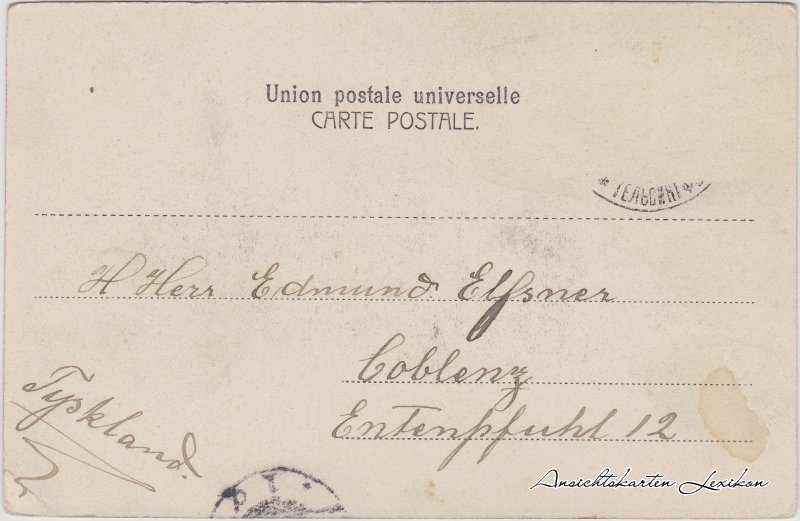 Union postale universelle
CARTE POSTALE.
* ГЕЛЬСИНГФ
H Herr Edmund Elssner
Coblenz
Entenpfuhl 12
Tyskland.
Ansichtskarten Lexikon